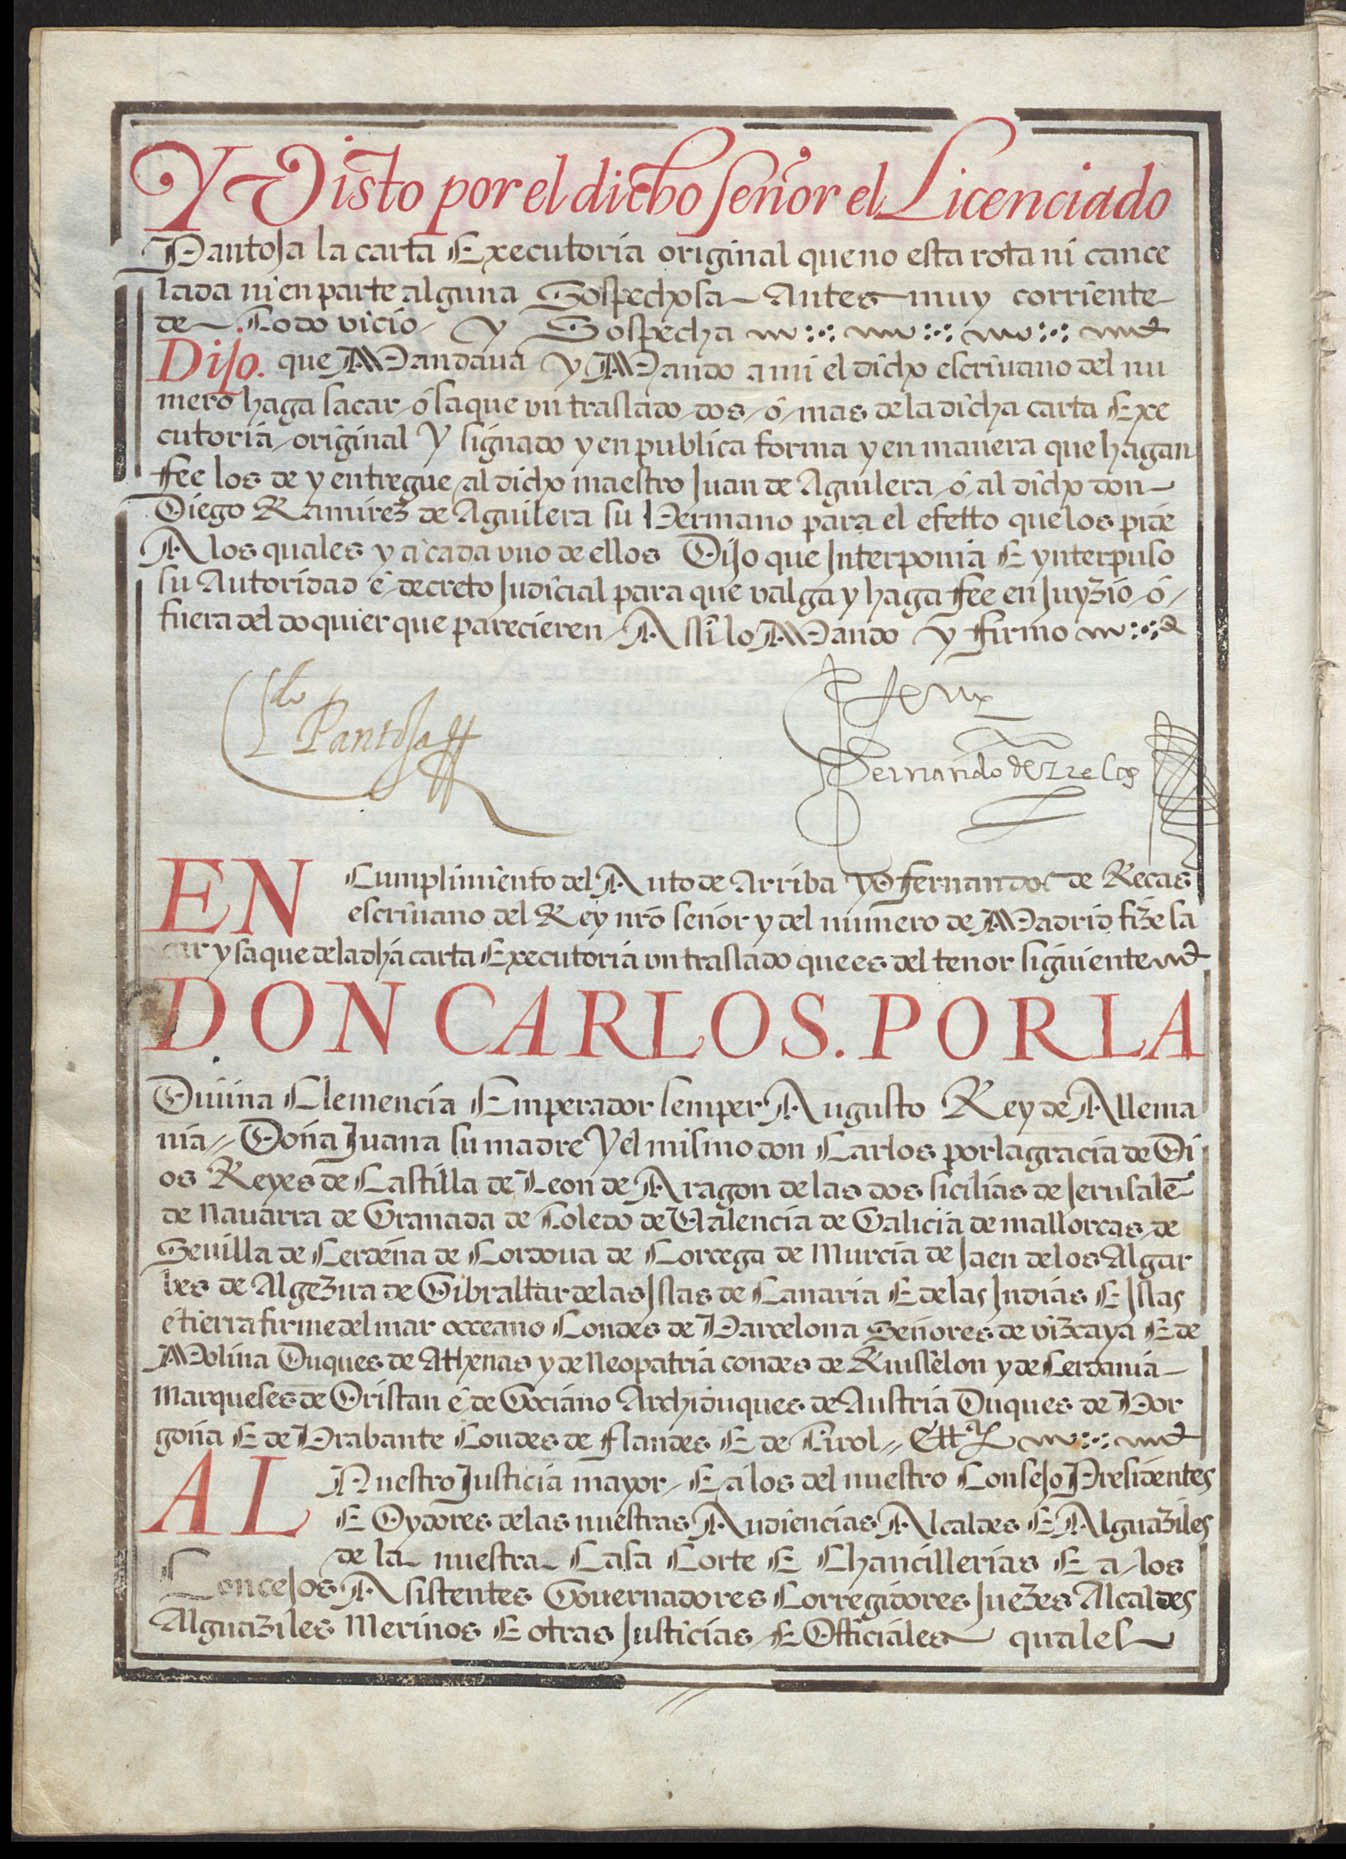 Y Visto por el dicho señor el Licenciado
Pantoja la carta Executoria original que no esta rota ni cance
lada ni en parte alguna Sospechosa Antes muy corriente
de Todo vicio y Sospecha
Dijo. que Mandaua y Mando a mi el dicho escriuano del nu
mero haga sacar ó saque vn traslado dos ó mas de la dicha carta Exe
cutoria original Y signado y en publica forma y en manera que hagan
fee los de y entregue al dicho maestro Juan de Aguilera ó al dicho don
Diego Ramirez de Aguilera su Hermano para el efetto que los pide
A los quales y a cada vno de ellos Dijo que Interponia E ynterpuso
su Autoridad é decreto Judicial para que valga y haga fee en Juyzio ó
fuera del do quier que parecieren Assi lo Mando y firmo
Ldo Pantoja
Fernando de
EN Cumplimiento del Auto de Arriba yo fernando de Recas
escriuano del Rey nrõ señor y del numero de Madrid fize sa
car y saque de la dhá carta Executoria vn traslado que es del tenor siguiente
DON CARLOS. POR LA
Diuina Clemencia Emperador semper Augusto Rey de Allema
nia Doña Juana su madre Y el mismo don Carlos por la gracia de Di
os Reyes de Castilla de Leon de Aragon de las dos sicilias de Jerusalẽ
de Nauarra de Granada de Toledo de Valencia de Galicia de mallorcas de
Seuilla de Cerdeña de Cordoua de Corcega de Murcia de Jaen de los Algar
bes de Algezira de Gibraltar de las Islas de Canaria E de las Indias E Islas
é tierra firme del mar occeano Condes de Barcelona Señores de vizcaya E de
Molina Duques de Athenas y de Neopatria condes de Ruisselon y de Cerdania
Marqueses de Oristan é de Gociano Archiduques de Austria Duques de Bor
goña E de Brabante Condes de Flandes E de Tirol Ettª
AL Nuestro Justicia mayor E a los del nuestro Consejo Presidentes
E Oydores de las nuestras Audiencias Alcaldes E Alguaziles
de la nuestra Casa Corte E Chancillerias E a los
Concejos Asistentes Gouernadores Corregidores Juezes Alcaldes
Alguaziles Merinos E otras Justicias E Officiales quales